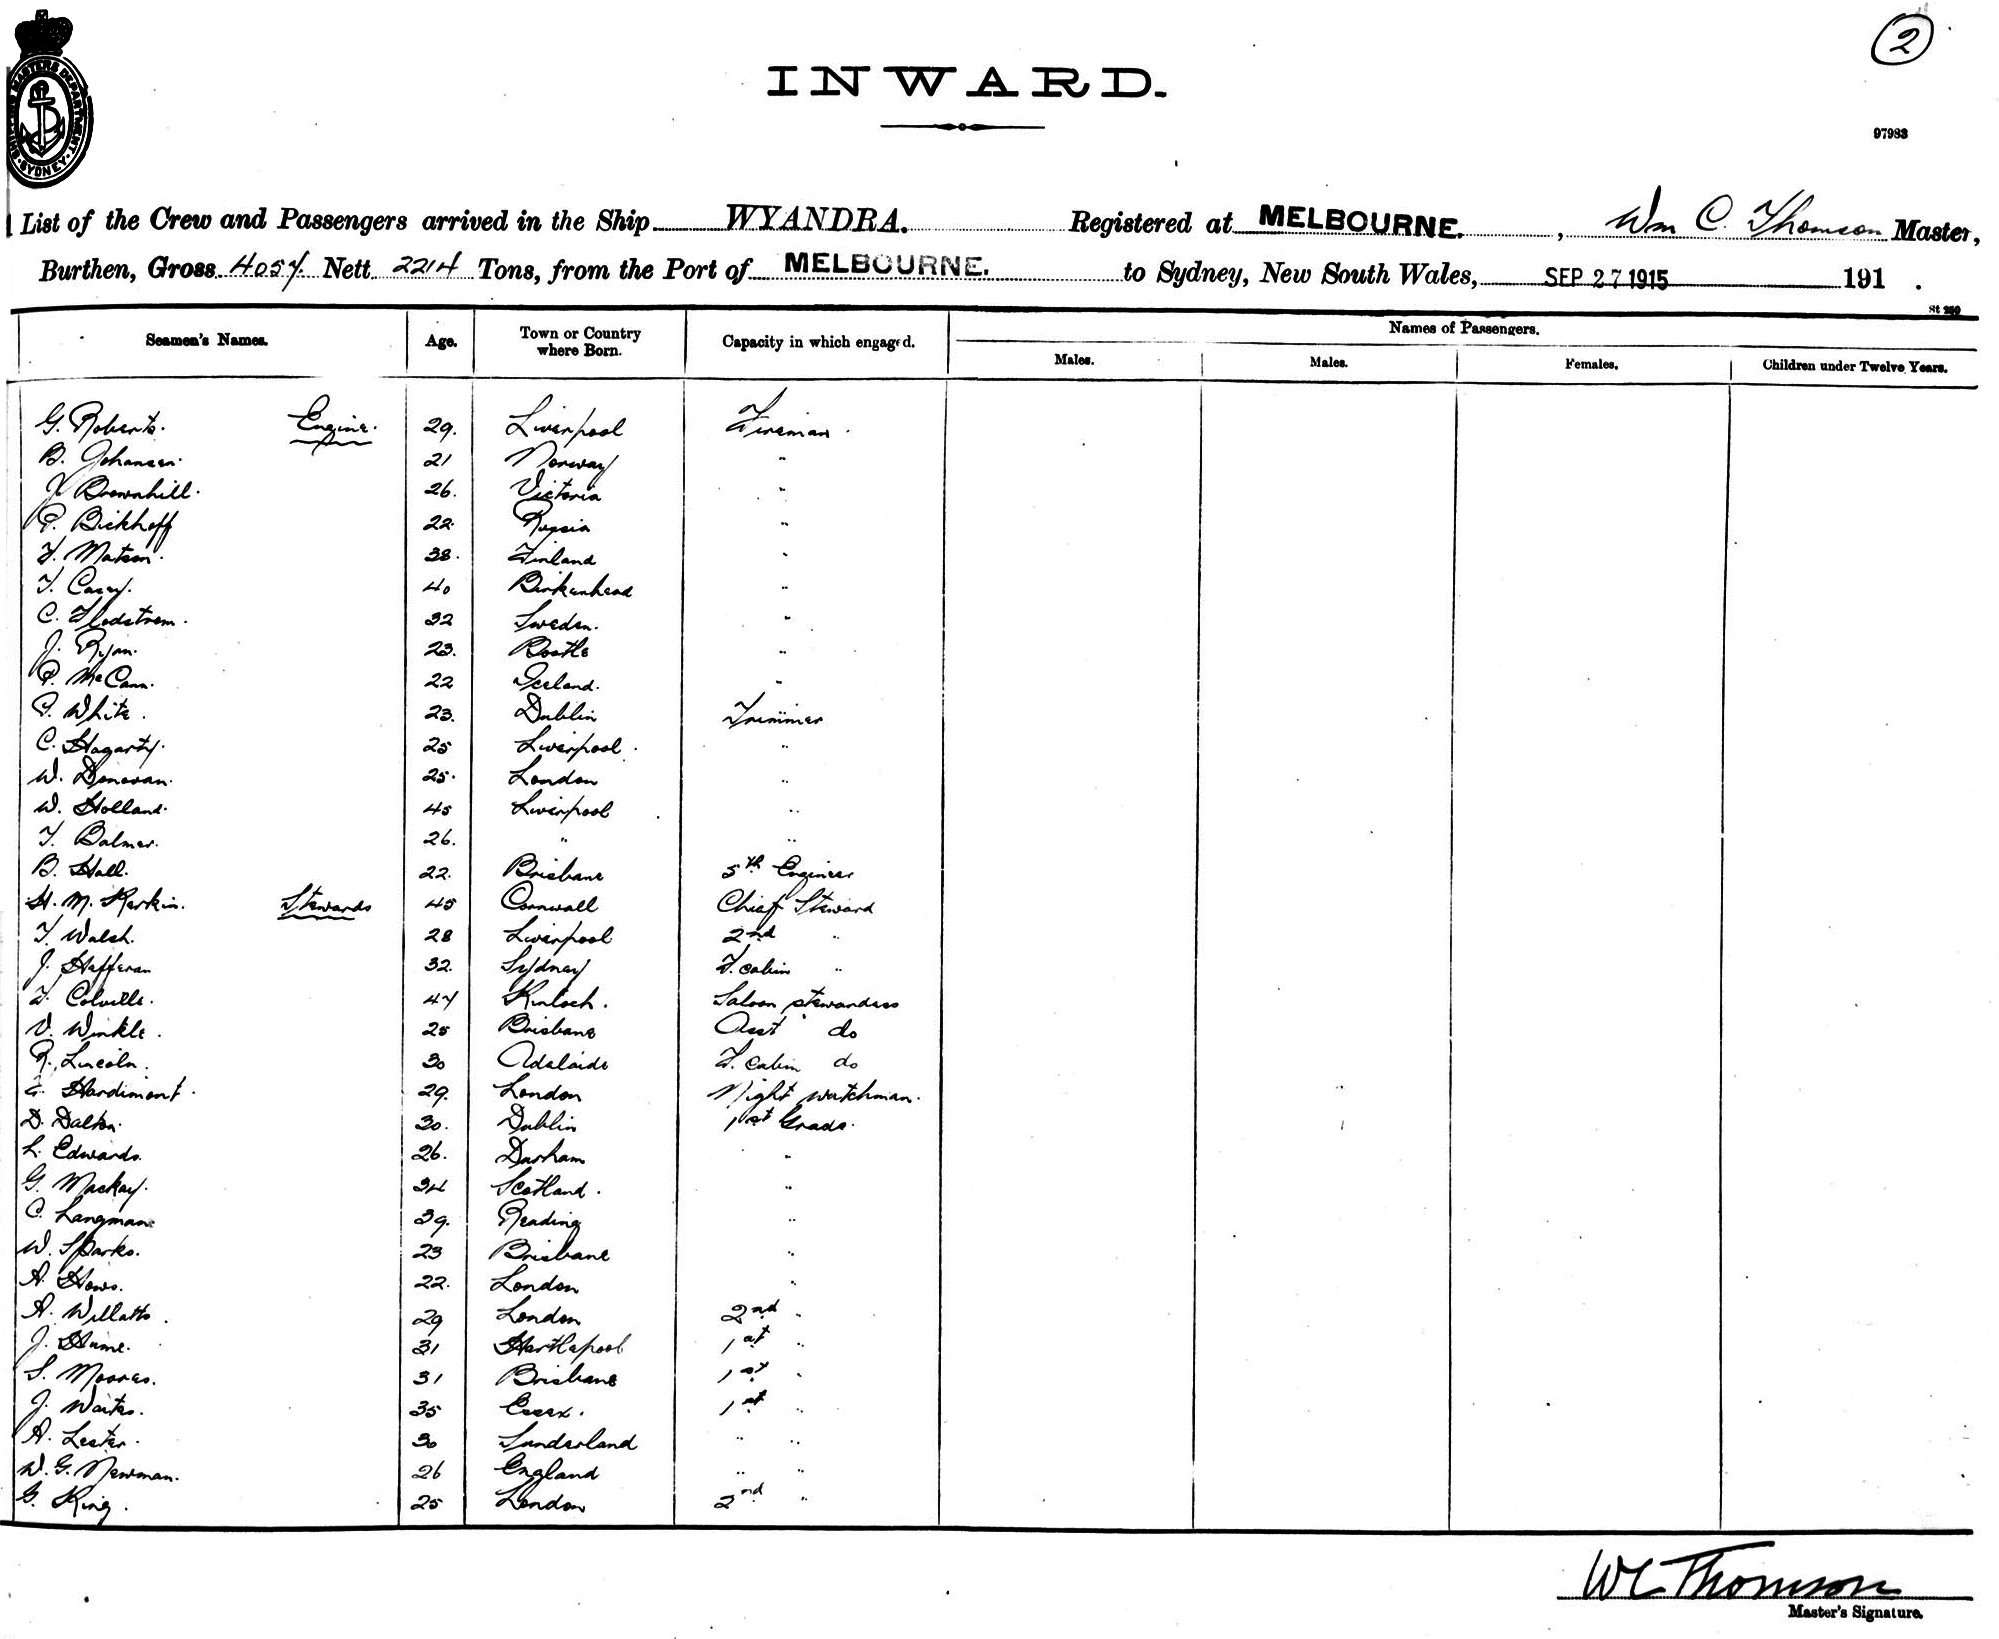 2
INWARD.
97983
SHIPPING MASTERS DEPARTMENT · SYDNEY ·
List of the Crew and Passengers arrived in the Ship WYANDRA. Registered at MELBOURNE. , Wm C. Thomson Master,
Burthen, Gross 4057 Nett 2214 Tons, from the Port of MELBOURNE. to Sydney, New South Wales, SEP 27 1915 191 .
St 250
Seamen's Names. Age. Town or Country where Born. Capacity in which engaged. Names of Passengers.
Males. Males. Females. Children under Twelve Years.
G. Roberts. Engine. 29. Liverpool Fireman.
B. Johansen. 21 Norway "
J. Brownhill. 26. Victoria "
P. Bickhoff 22. Russia "
F. Matson. 38. Finland "
T. Casey. 40 Birkenhead "
C. Flodstrom. 32 Sweden. "
J. Ryan. 23. Bootle "
P. McCann. 22 Iceland. "
P. White. 23. Dublin Trimmer
C. Hagarty. 25 Liverpool. "
W. Donovan. 25. London "
W. Holland. 45 Liverpool "
T. Balmer. 26. " "
B. Hall. 22. Brisbane 5th Engineer
H. M. Kerkin. Stewards 45 Cornwall Chief Steward
T. Walsh. 28 Liverpool 2nd "
J. Hefferan 32. Sydney F. cabin "
F. Colville. 47 Kinloch. Saloon stewardess
V. Winkle. 25 Brisbane Asst do
R. Lincoln. 30 Adelaide F. cabin do
Hardimont. 29. London Night watchman.
D. Dalton. 30. Dublin 1st Grade.
L. Edwards. 26. Durham "
G. Mackay. 34 Scotland. "
C. Langman. 39. Reading "
W. Sparks. 23 Brisbane "
A. Hows. 22. London "
A. Willatts. 29 London 2nd "
J. Hume. 31 Hartlepool 1st "
S. Moores. 31 Brisbane 1st "
J. Waites. 35 Essex. 1st "
A. Lester. 30 Sunderland " "
W. G. Newman. 26 England " "
G. King. 25 London 2nd "
WC Thomson
Master's Signature.